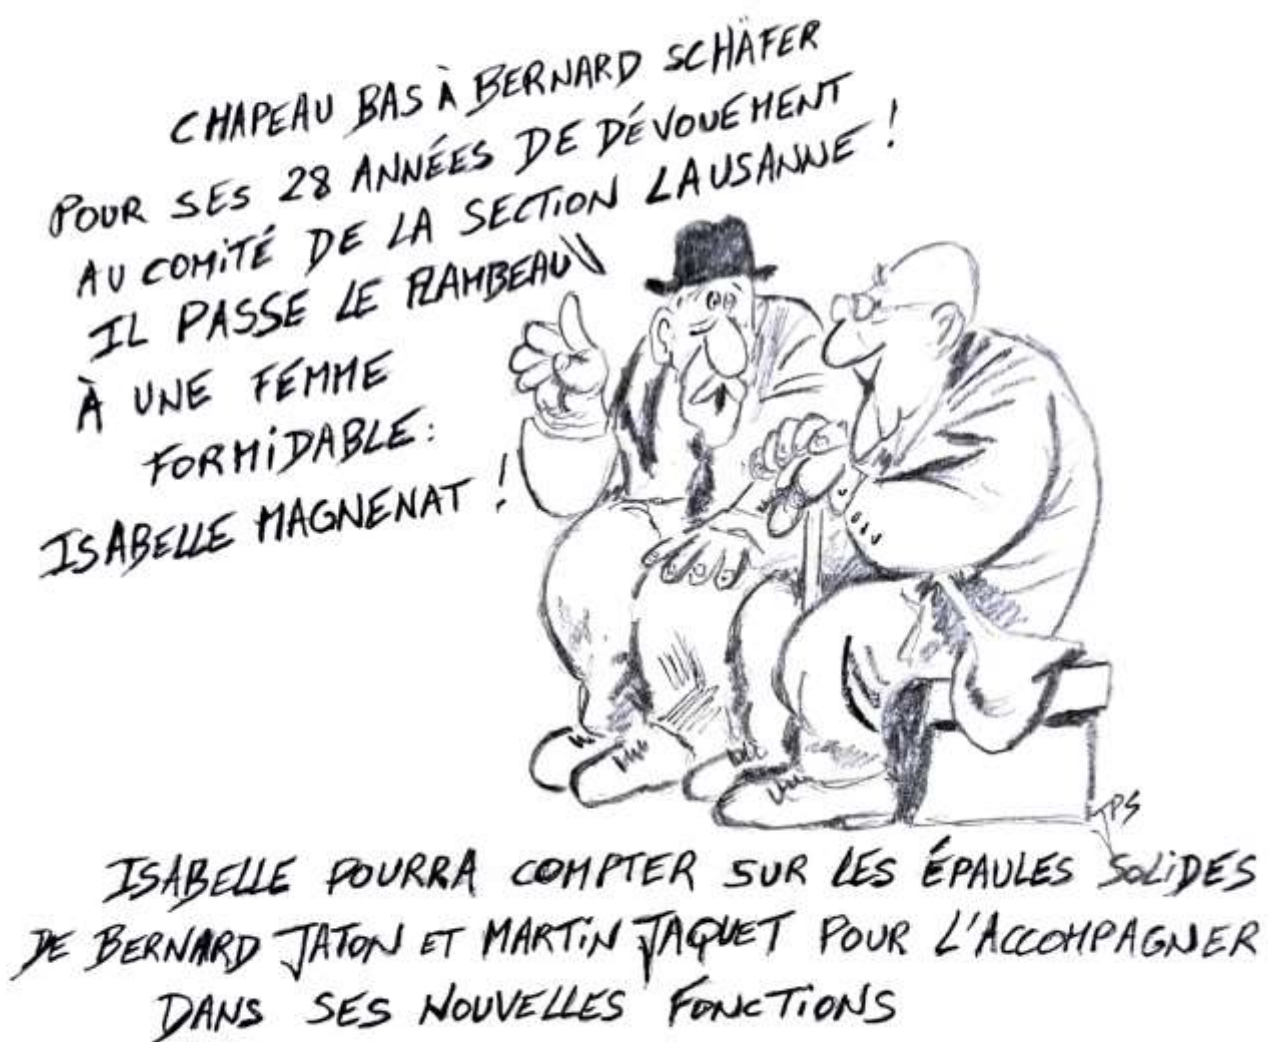 CHAPEAU BAS À BERNARD SCHÄFER
POUR SES 28 ANNÉES DE DÉVOUEMENT
AU COMITÉ DE LA SECTION LAUSANNE !
IL PASSE LE FLAMBEAU
À UNE FEMME
FORMIDABLE :
ISABELLE MAGNENAT !
JPS
ISABELLE POURRA COMPTER SUR LES ÉPAULES SOLIDES
DE BERNARD JATON ET MARTIN JAQUET POUR L'ACCOMPAGNER
DANS SES NOUVELLES FONCTIONS